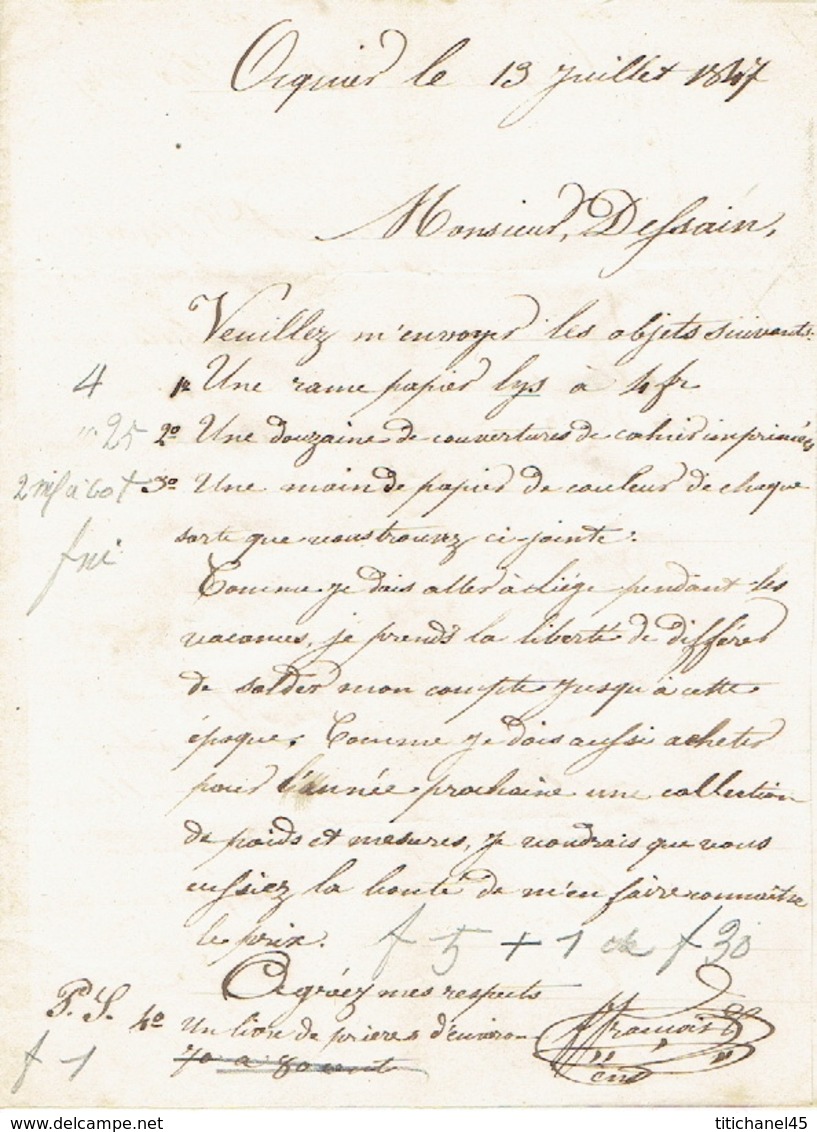 Ocquier le 13 juillet 1847
Monsieur, Dessain,
Veuillez m'envoyer les objets suivants:
4 1º Une rame papier lys à 4 fr
25 2º Une douzaine de couvertures de cahier imprimées
3º Une main de papier de couleur de chaque
sorte que vous trouvez ci jointe.
Comme je dois aller à Liége pendant les
vacances, je prends la liberté de différer
de solder mon compte jusqu'à cette
époque. Comme je dois aussi acheter
pour l'année prochaine une collection
de poids et mesures, je voudrais que vous
eussiez la bonté de m'en faire connaître
le prix. f 5 + 1 de f 30
Agréez mes respects
P.S. 4º Un livre de prières d'environ François
f 1 70 à 80 cent
titichanel45